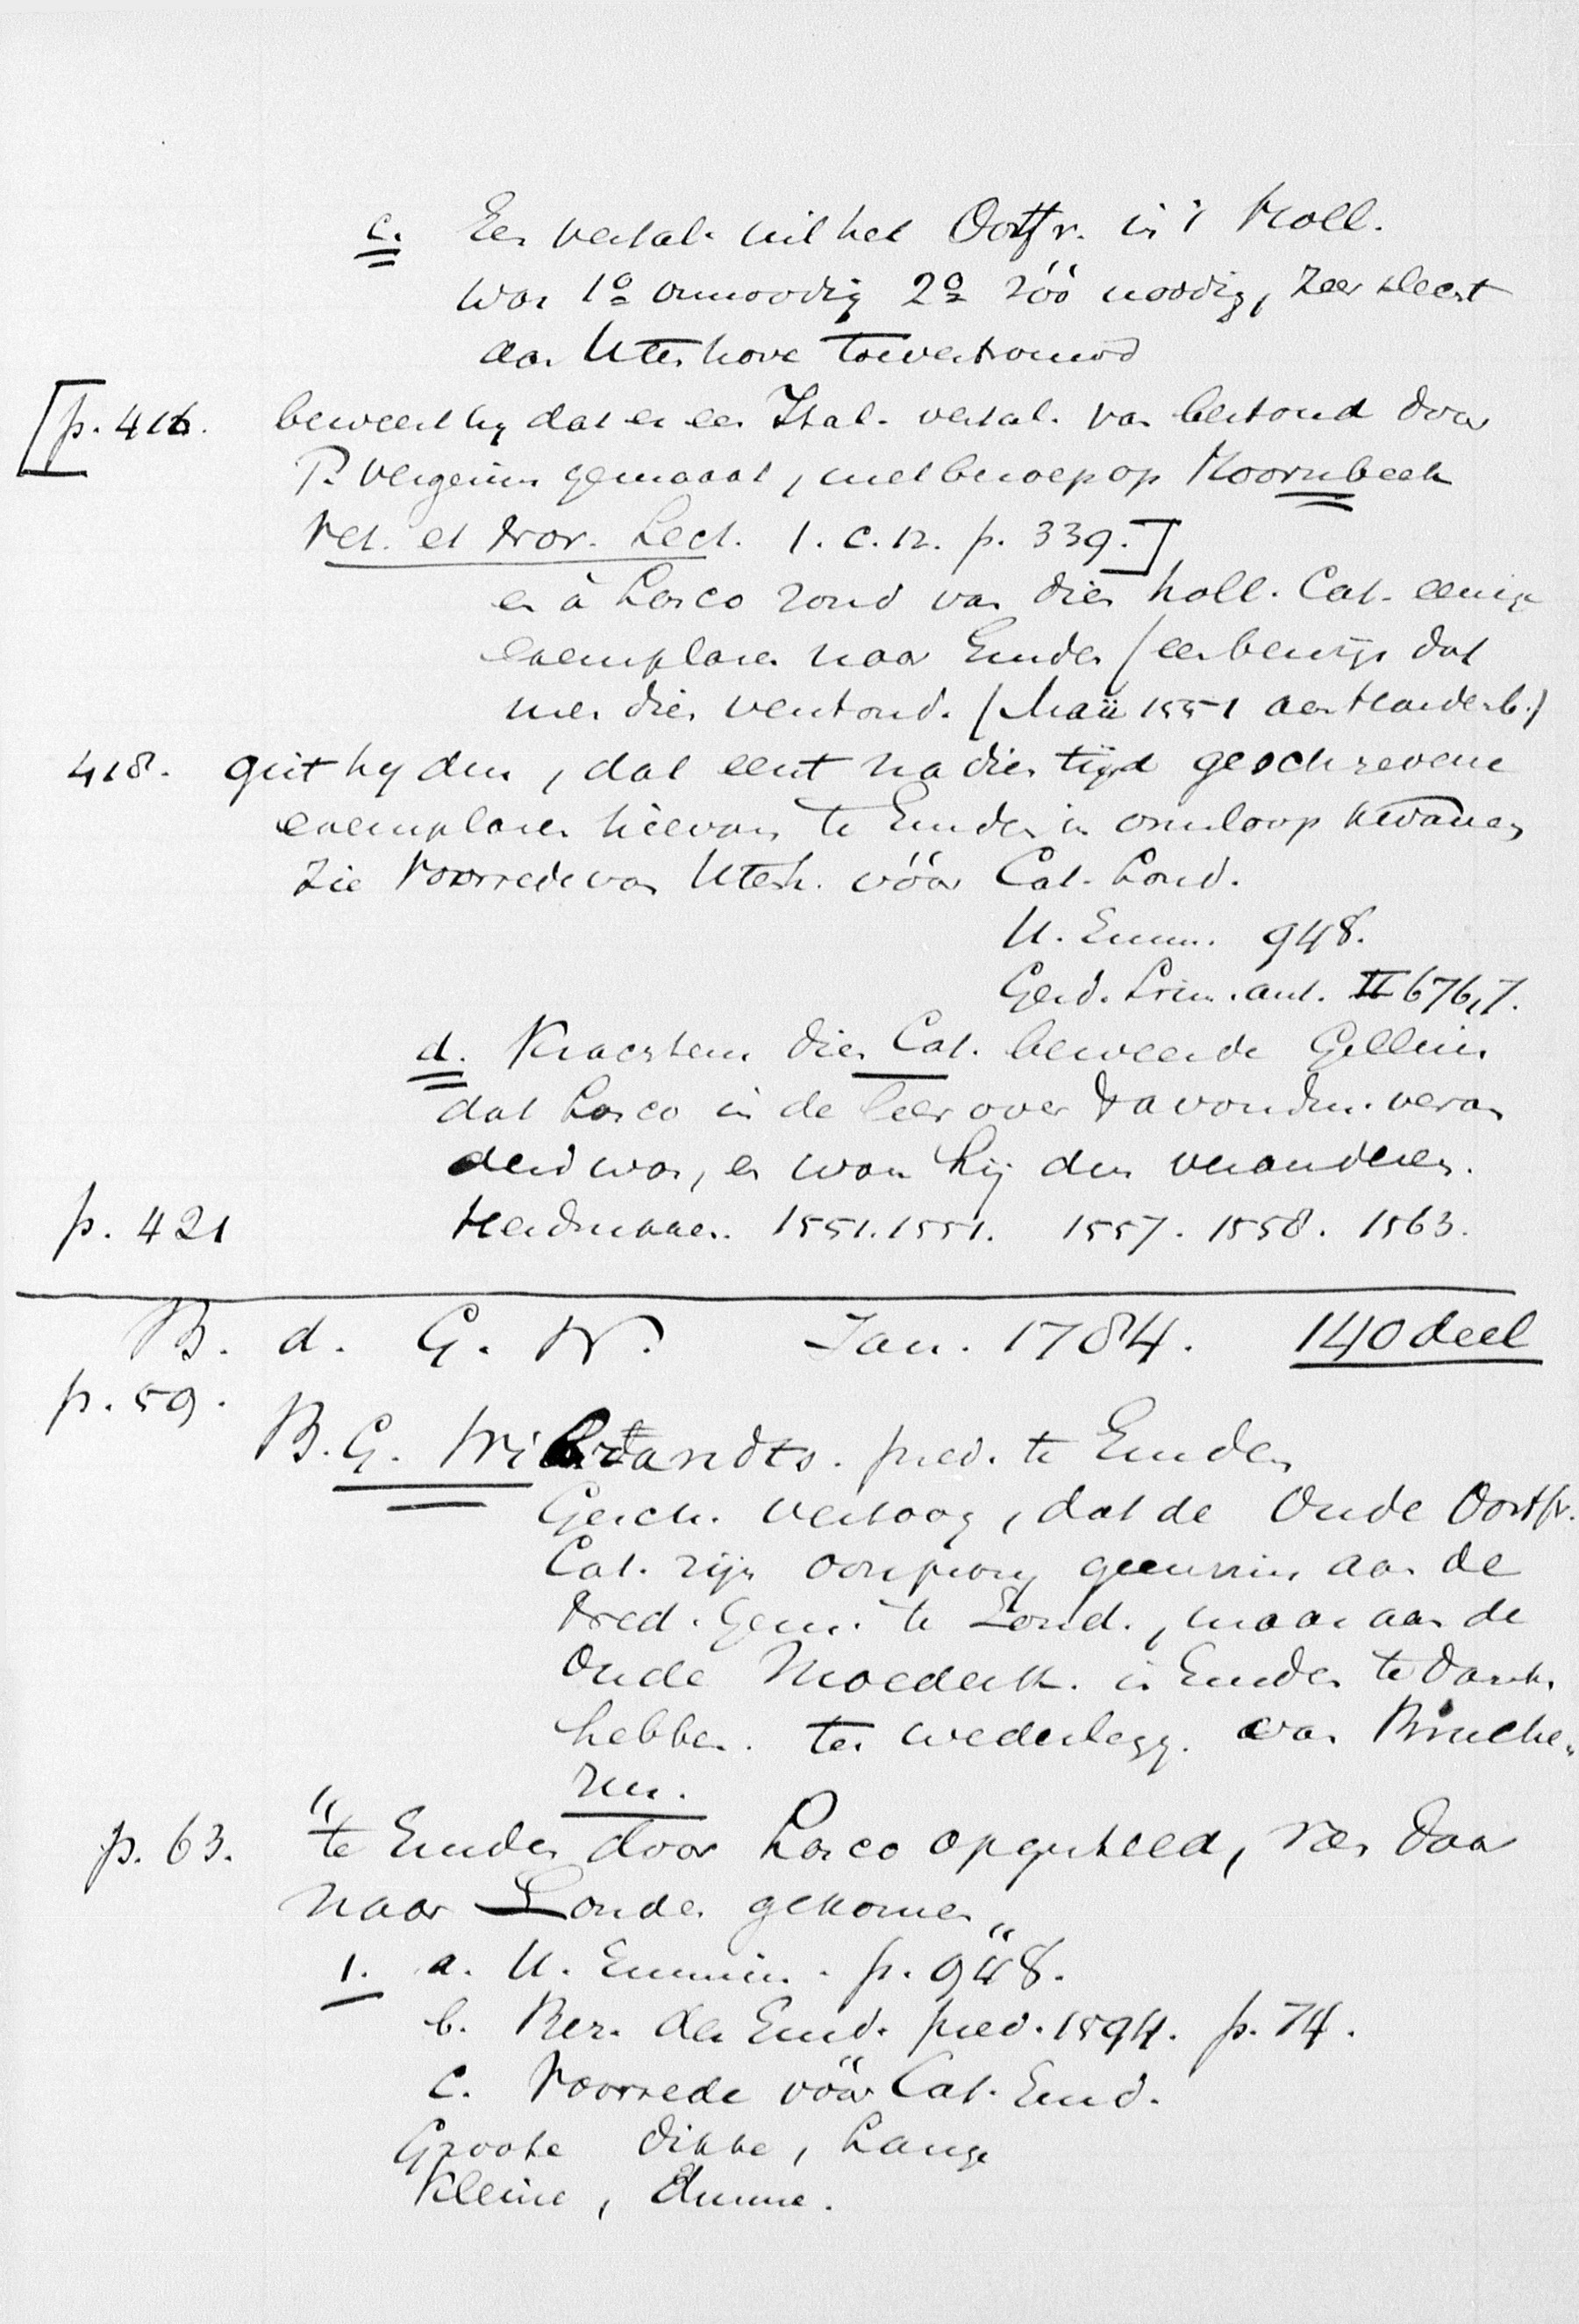 c. Een vertal. uit het Oostfr. in 't Holl.
was 1º onnoodig 2º zóó noodig, zeer slecht
aan Utenhove toevertrouwd
[p. 416. beweert hij dat er een Ital. vertal. van bestond door
P. Vergerius gemaakt, met beroep op Hoornbeek
Vet. et Nov. Eccl. 1. c. 12. p. 339.]
en à Lasco zond van dien holl. Cat. eenige
exemplaren naar Emden (een bewijs dat
men dien verstond. (Maii 1551 aen Hardenb.)
418. gist hij dus, dat eerst na dien tijd geschrevene
exemplaren hiervan te Emden in omloop kwamen
Zie Voorrede van Utenh. vóór Cat. Lond.
U. Emm. 948.
Gerd. Scrin. ant. II 676,7.
d. Krachtens dien Cat. beweerde Gellius
dat Lasco in de leer over 't avondm. veran
derd was, en wou hij dus veranderen.
p. 421 Herdrukken. 1551. 1551. 1557. 1558. 1563.
B. d. G. W. Jan. 1784. 140 deel
p. 59. B. G. Wibrandts. pred. te Emden
Gesch. Vertoog, dat de Oude Oostfr.
Cat. zijn oorsprong geenszins aan de
Ned. Gem. te Lond., maar aan de
Oude Moederk. in Emden te dank.
hebben. ter wederlegg. van Bruche„
rus.
p. 63. "te Emden door Lasco opgesteld, van daar
naar Londen gekomen„
1. a. U. Emmius. p. 948.
b. Ber. der Emd. pred. 1594. p. 74.
c. Voorrede vóór Cat. Emd.
Groote dikke, Lange
Kleine, dunne.